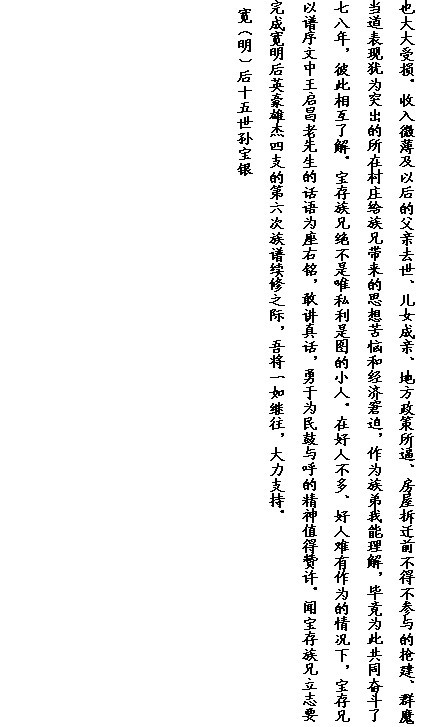 也大大受损。收入微薄及以后的父亲去世、儿女成亲、地方政策所逼、房屋拆迁前不得不参与的抢建、群魔
当道表现犹为突出的所在村庄给族兄带来的思想苦恼和经济窘迫，作为族弟我能理解，毕竟为此共同奋斗了
七八年，彼此相互了解。宝存族兄绝不是唯私利是图的小人。在好人不多、好人难有作为的情况下，宝存兄
以谱序文中王启昌老先生的话语为座右铭，敢讲真话，勇于为民鼓与呼的精神值得赞许。闻宝存族兄立志要
完成宽明后英豪雄杰四支的第六次族谱续修之际，吾将一如继往，大力支持。
宽（明）后十五世孙宝银